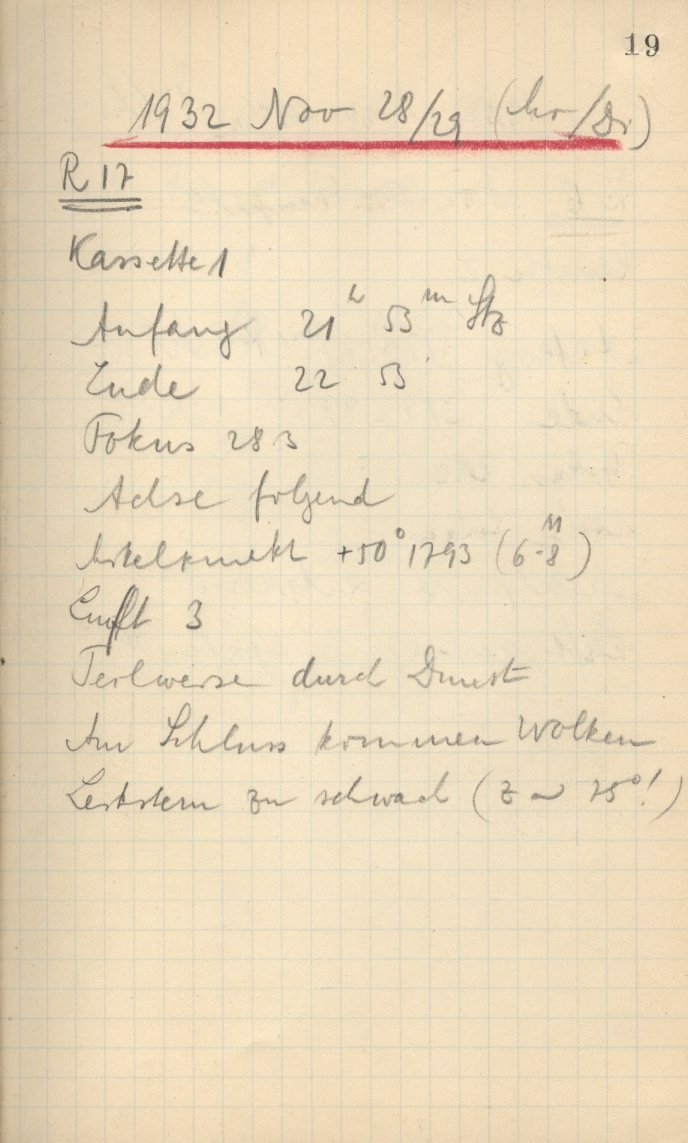 19
1932 Nov 28/29 (Mo/Di)
R 17
Kassette 1
Anfang 21h 53m Stz
Ende 22 53
Fokus 283
Achse folgend
Mittelpunkt +50° 1793 (6-8M)
Luft 3
Teilweise durch Dunst
Am Schluss kommen Wolken
Leitstern zu schwach (z ~ 75°!)